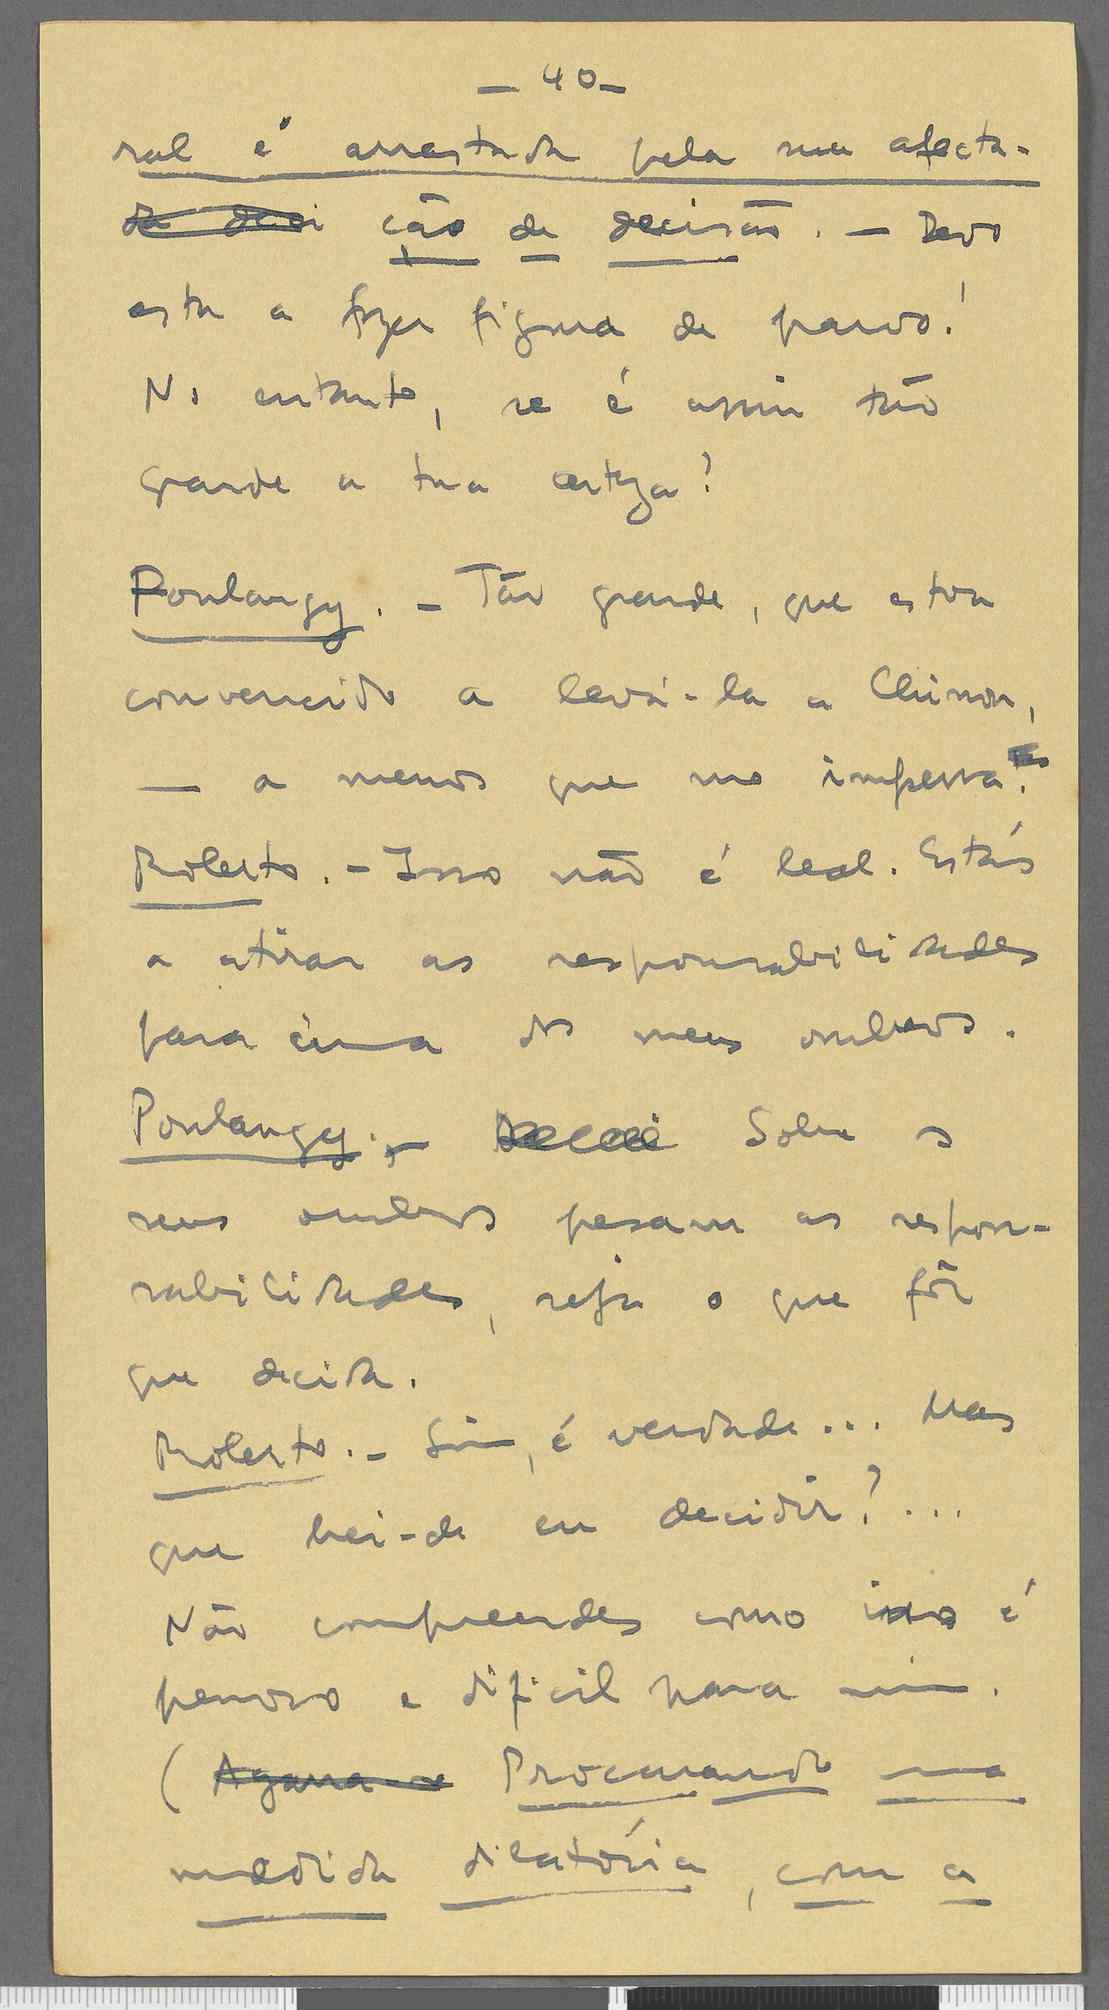 — 40 —
ral é arrastada pela sua afecta-
da deci ção de decisão. — Devo
estar a fazer figura de parvo!
No entanto, se é assim tão
grande a tua certeza?
Poulangy. — Tão grande, que estou
convencido a levá-la a Chinon,
— a menos que mo impessa.
Roberto. — Isso não é leal. Estás
a atirar as responsabilidades
para cima dos meus ombros.
Poulangy. — Sobre os
seus ombros pesam as respon-
sabilidades, seja o que fôr
que decida.
Roberto. — Sim, é verdade... Mas
que hei-de eu decidir?...
Não compreendes como isso é
penoso e difícil para mim.
(Agarra-se Procurando uma
medida dilatória, com a